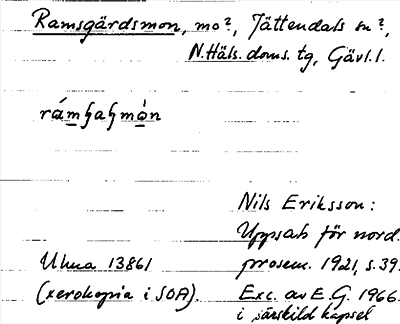 Ramsgärdsmon, mo?, Jättendals sn?,
N.Häls. doms. tg, Gävl. l.
rámʂaʂmòn
Nils Eriksson:
Uppsats för nord.
Ulma 13861 prosem. 1921, s. 39.
(xerokopia i SOA). Exc. av E.G. 1966.
i särskild kapsel